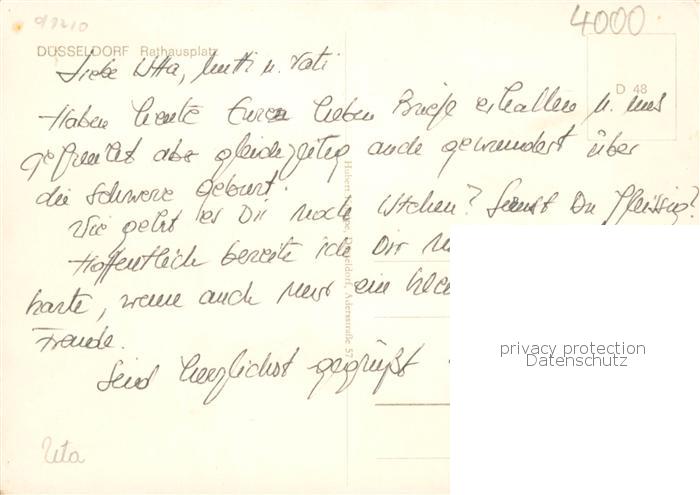 91210
4000
DÜSSELDORF Rathausplatz
D 48
Liebe Utta, Mutti u. Vati
Haben heute Euren lieben Brief erhalten u. uns
gefreut aber gleichzeitig auch gewundert über
die schwere Geburt.
Wie geht es Dir noch Utchen? Lernst Du fleissig?
Hoffentlich bereite ich Dir
karte, wenn auch nur ein klei
Freude.
Seid herzlichst gegrüßt
Düsseldorf, Adersstraße 57
privacy protection
Datenschutz
Uta